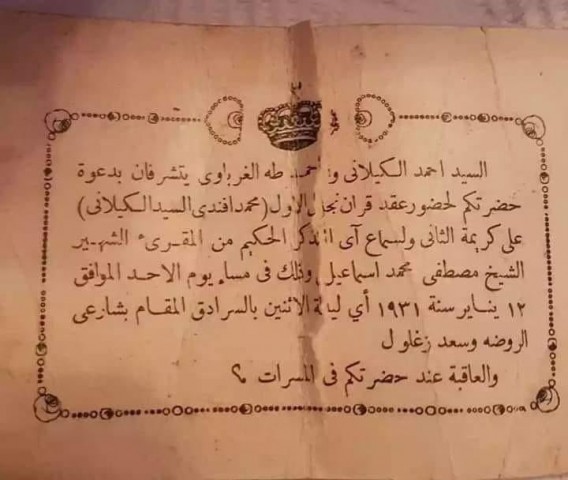 السيد احمد الكيلانى واحمد طه الغرباوى يتشرفان بدعوة
حضرتكم لحضور عقد قران نجل الاول (محمد افندى السيد الكيلانى)
على كريمة الثانى ولسماع آى الذكر الحكيم من المقرىء الشهير
الشيخ مصطفى محمد اسماعيل وذلك فى مساء يوم الاحد الموافق
١٢ يناير سنة ١٩٣١ أي ليلة الاثنين بالسرادق المقام بشارعى
الروضه وسعد زغلول
والعاقبة عند حضرتكم فى المسرات